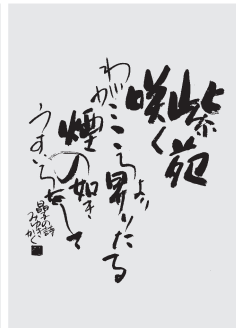 紫苑
咲く
わがこころより
昇りたる
煙の如き
うすいろをして
晶子の詩
みゆきかく